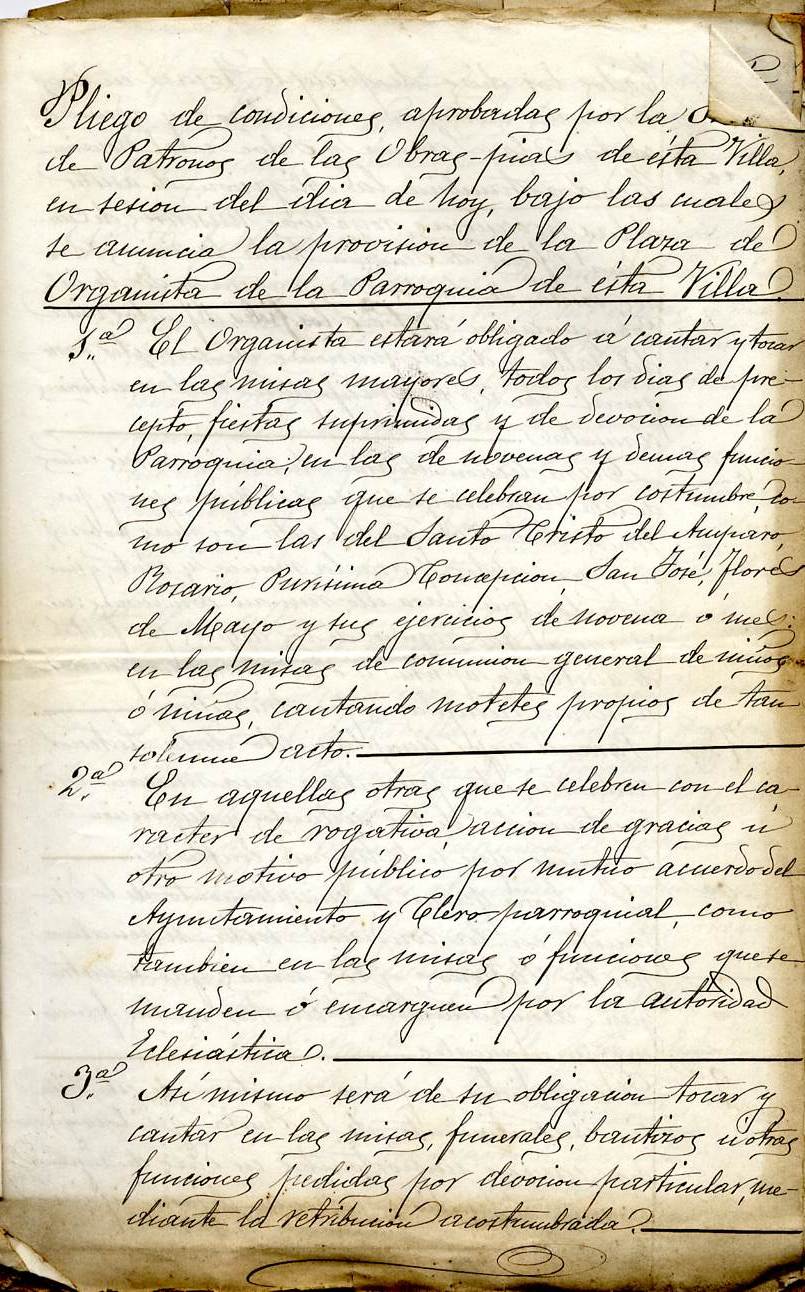 Pliego de condiciones, aprobadas por la
de Patronos de las Obras-pias de ésta Villa,
en sesion del dia de hoy, bajo las cuales
se anuncia la provision de la Plaza de
Organista de la Parroquia de ésta Villa.
1.ª El Organista estará obligado á cantar y tocar
en las misas mayores, todos los dias de pre-
cepto, fiestas suprimidas y de devocion de la
Parroquia; en las de novenas y demas funcio-
nes públicas que se celebran por costumbre co-
mo son las del Santo Cristo del Amparo,
Rosario, Purísima Concepcion, San José, Flores
de Mayo y sus ejercicios de novena ó mes:
en las misas de comunion general de niños
ó niñas, cantando motetes propios de tan
solemne acto.
2.ª En aquellas otras que se celebren con el ca-
racter de rogativa, accion de gracias ú
otro motivo público por mutuo acuerdo del
Ayuntamiento y Clero parroquial, como
tambien en las misas ó funciones que se
manden ó encarguen por la autoridad
Eclesiástica.
3.ª Asi mismo será de su obligacion tocar y
cantar en las misas, funerales, bautizos ú otras
funciones pedidas por devocion particular, me-
diante la retribucion acostumbrada.